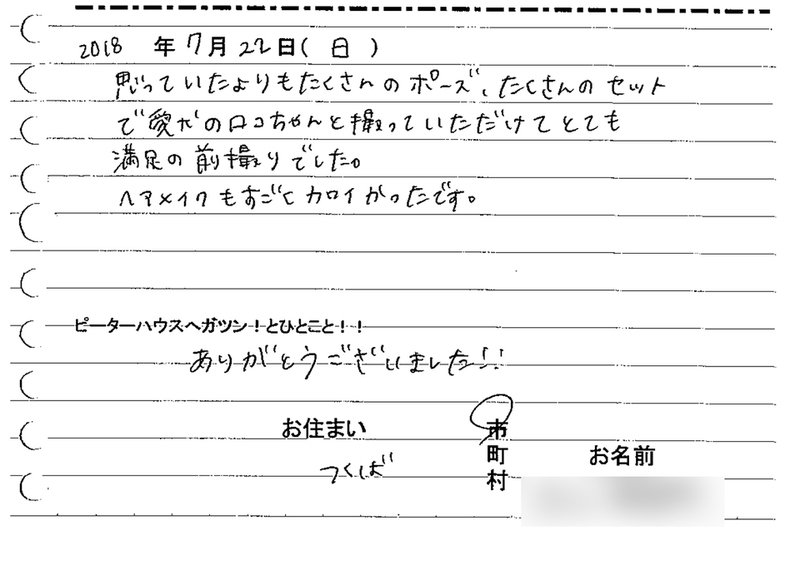 2018 年7月22日(日)
思っていたよりもたくさんのポーズ、たくさんのセット
で愛犬のロコちゃんと撮っていただけてとても
満足の前撮りでした。
ヘアメイクもすごくカワイかったです。
ピーターハウスへガツン!とひとこと!!
ありがとうございました!!
お住まい 市
町 お名前
つくば 村